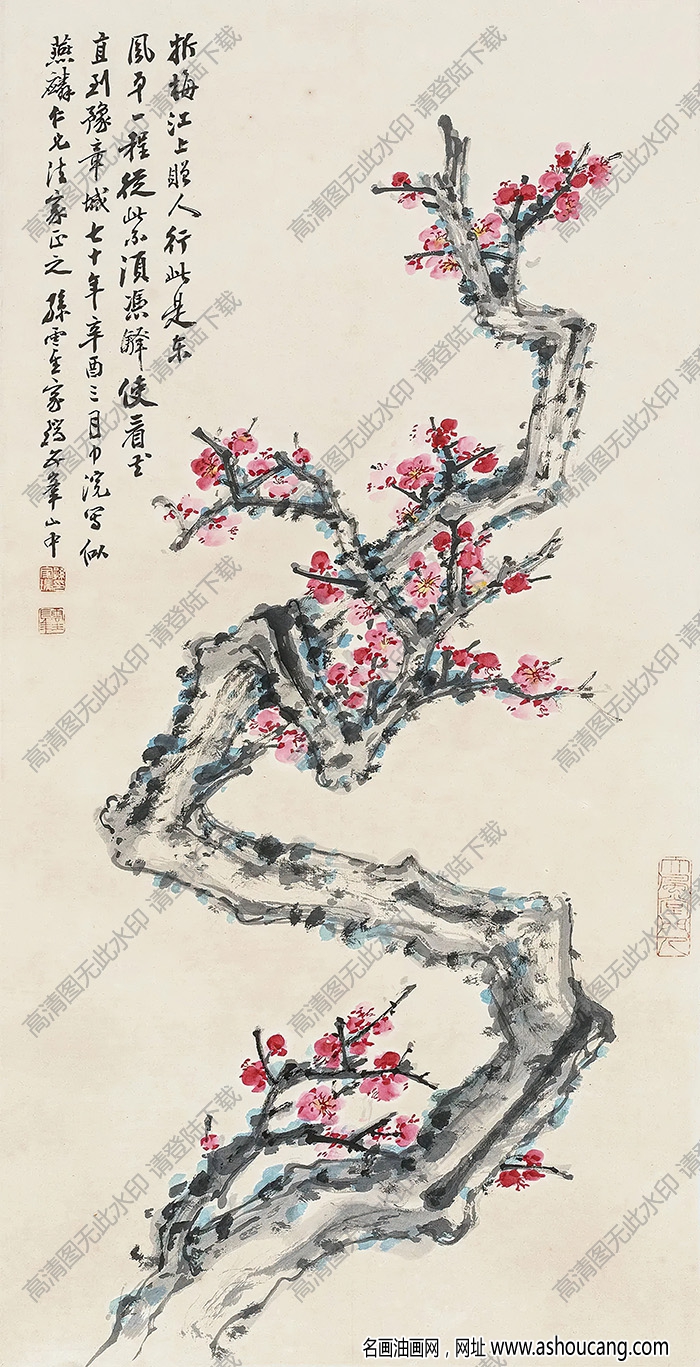 折梅江上贈人行此是东
風第一程從此不須憑驛使看花
直到豫章城七十年辛酉三月中浣写似
燕麟仁兄法家正之 孫雲生家瑞
山中
高清图无此水印 请登陆下载
名画油画网，网址 www.ashoucang.com